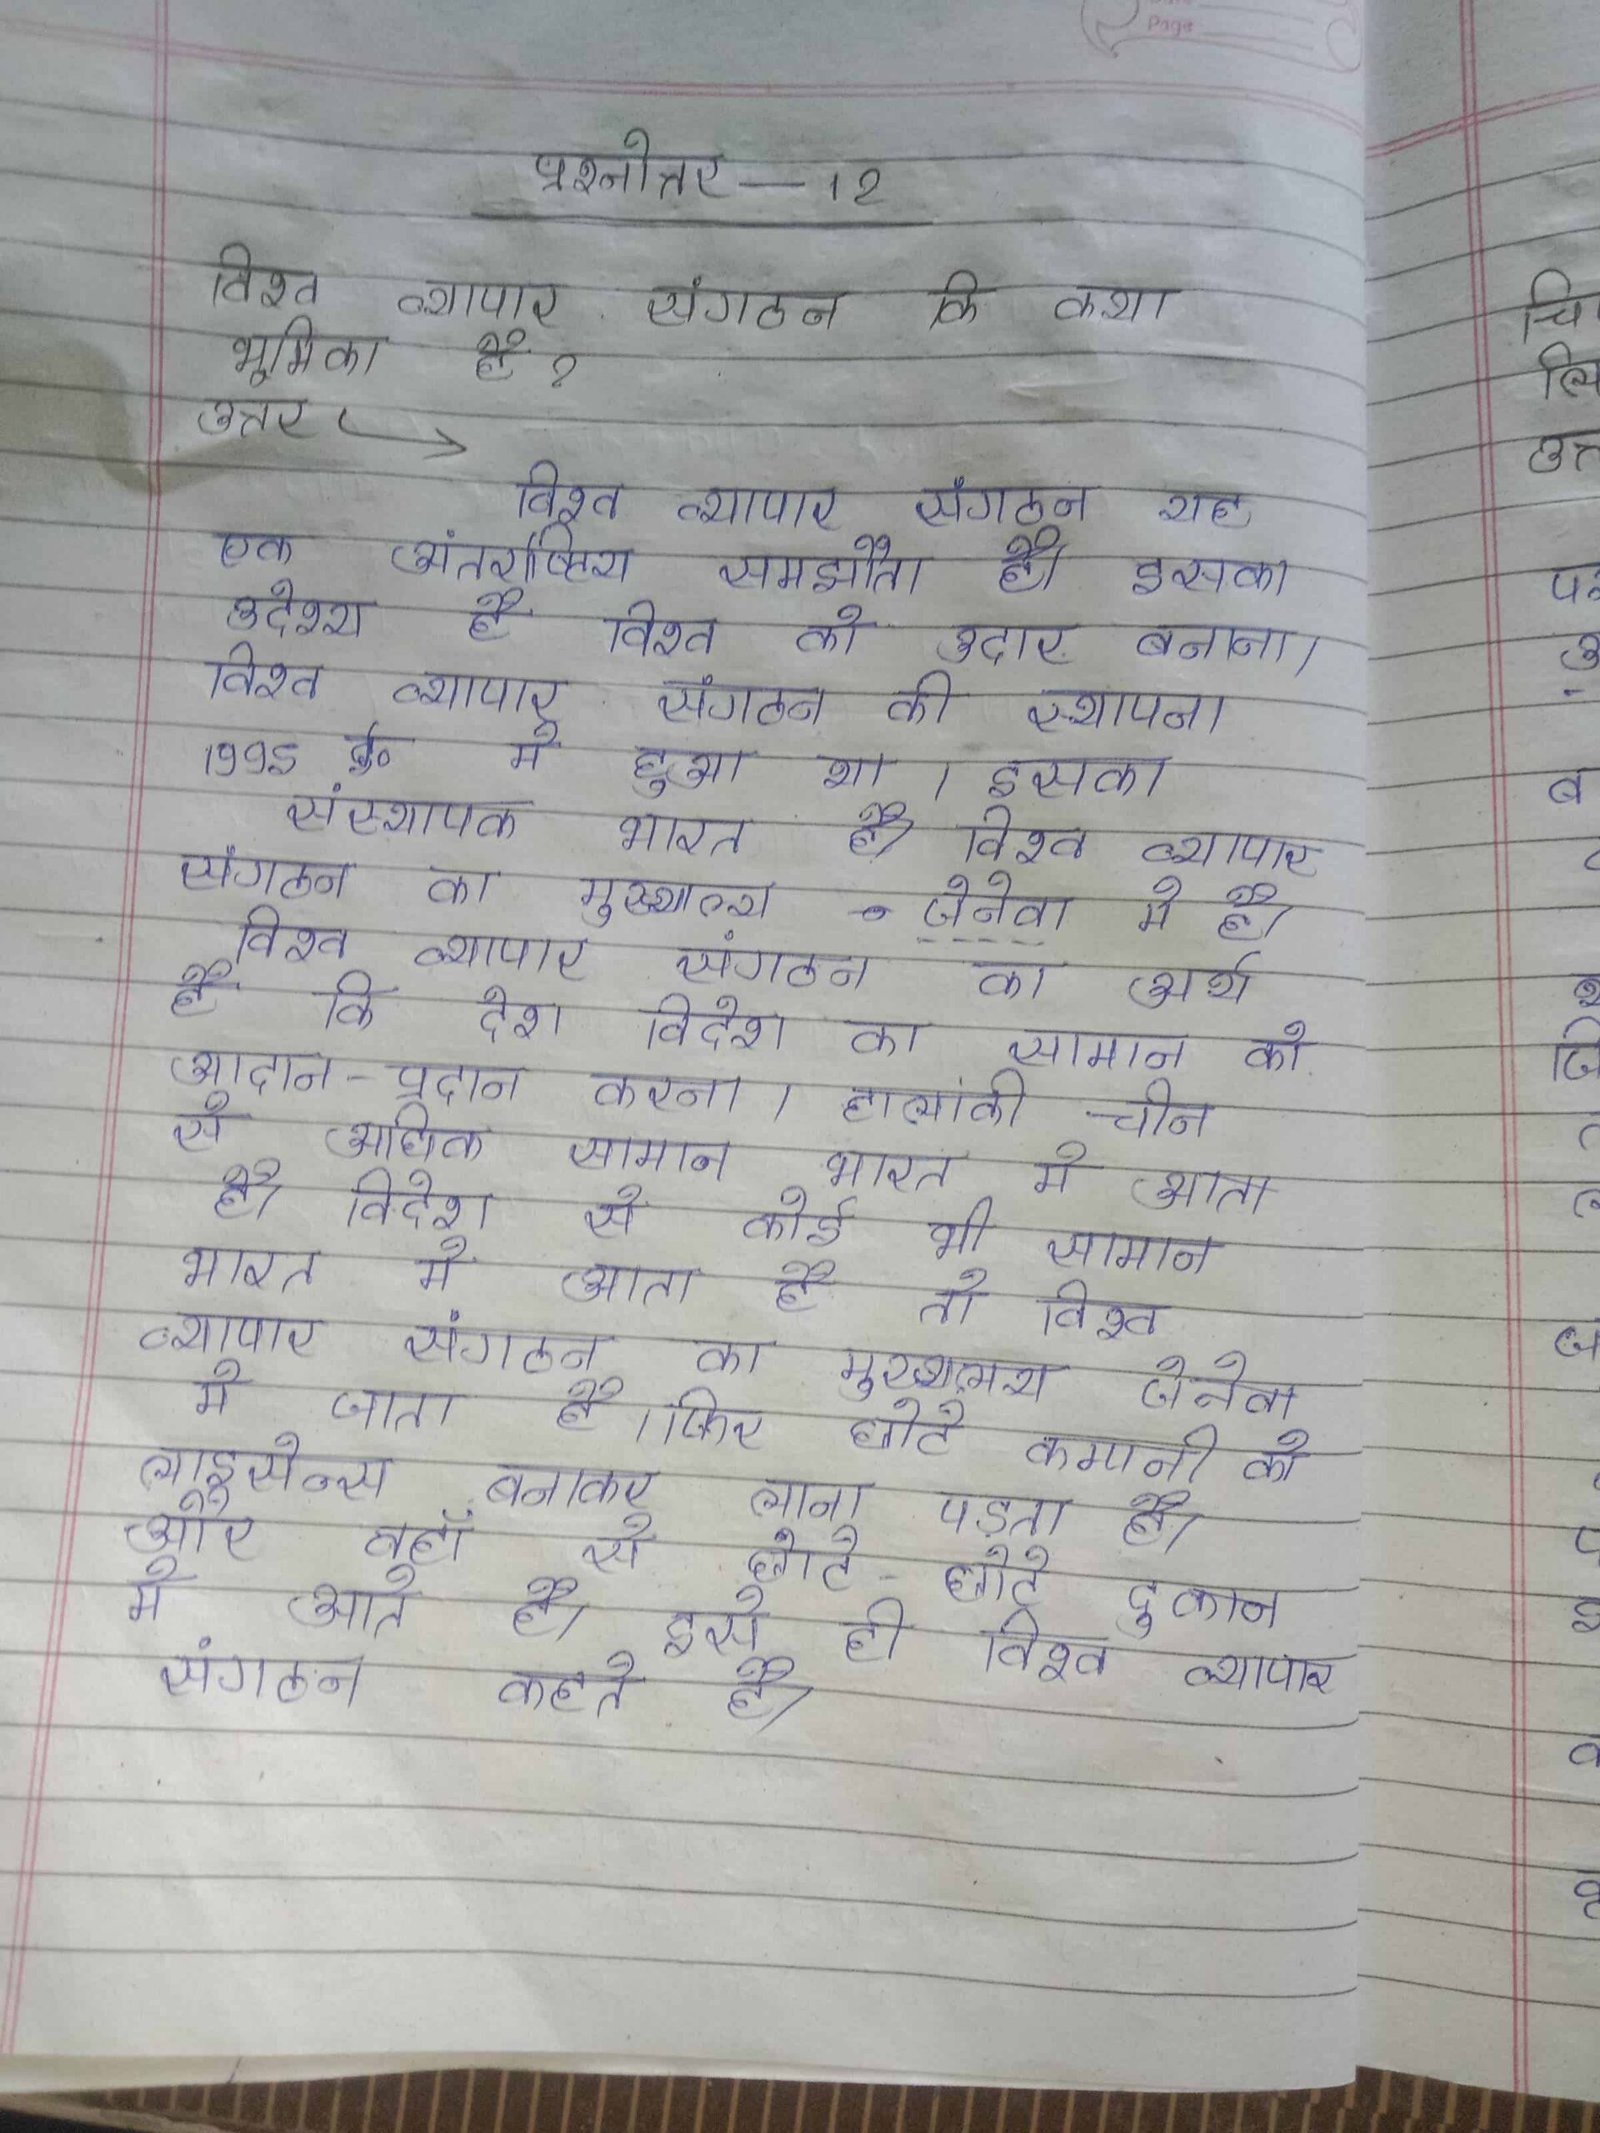 Page
प्रश्नोत्तर — 12
विश्व व्यापार संगठन कि क्या
भूमिका है ?
उत्तर
विश्व व्यापार संगठन यह
एक अंतर्राष्ट्रिय समझौता है। इसका
उदेश्य है विश्व को उदार बनाना।
विश्व व्यापार संगठन की स्थापना
1995 ई० मे हुआ था। इसका
संस्थापक भारत है। विश्व व्यापार
संगठन का मुख्याल्य जेनेवा मे है।
विश्व व्यापार संगठन का अर्थ
है कि देश विदेश का सामान को
आदान-प्रदान करना। हालांकी चीन
से अधिक सामान भारत मे आता
है। विदेश से कोई भी सामान
भारत मे आता है तो विश्व
व्यापार संगठन का जेनेवा
मे जाता है। फिर छोटे कम्पनी को
लाइसेन्स बनाकर लाना पड़ता है।
और वहाँ से छोटे-छोटे दुकान
मे आते है। इसे ही विश्व व्यापार
संगठन कहते है।